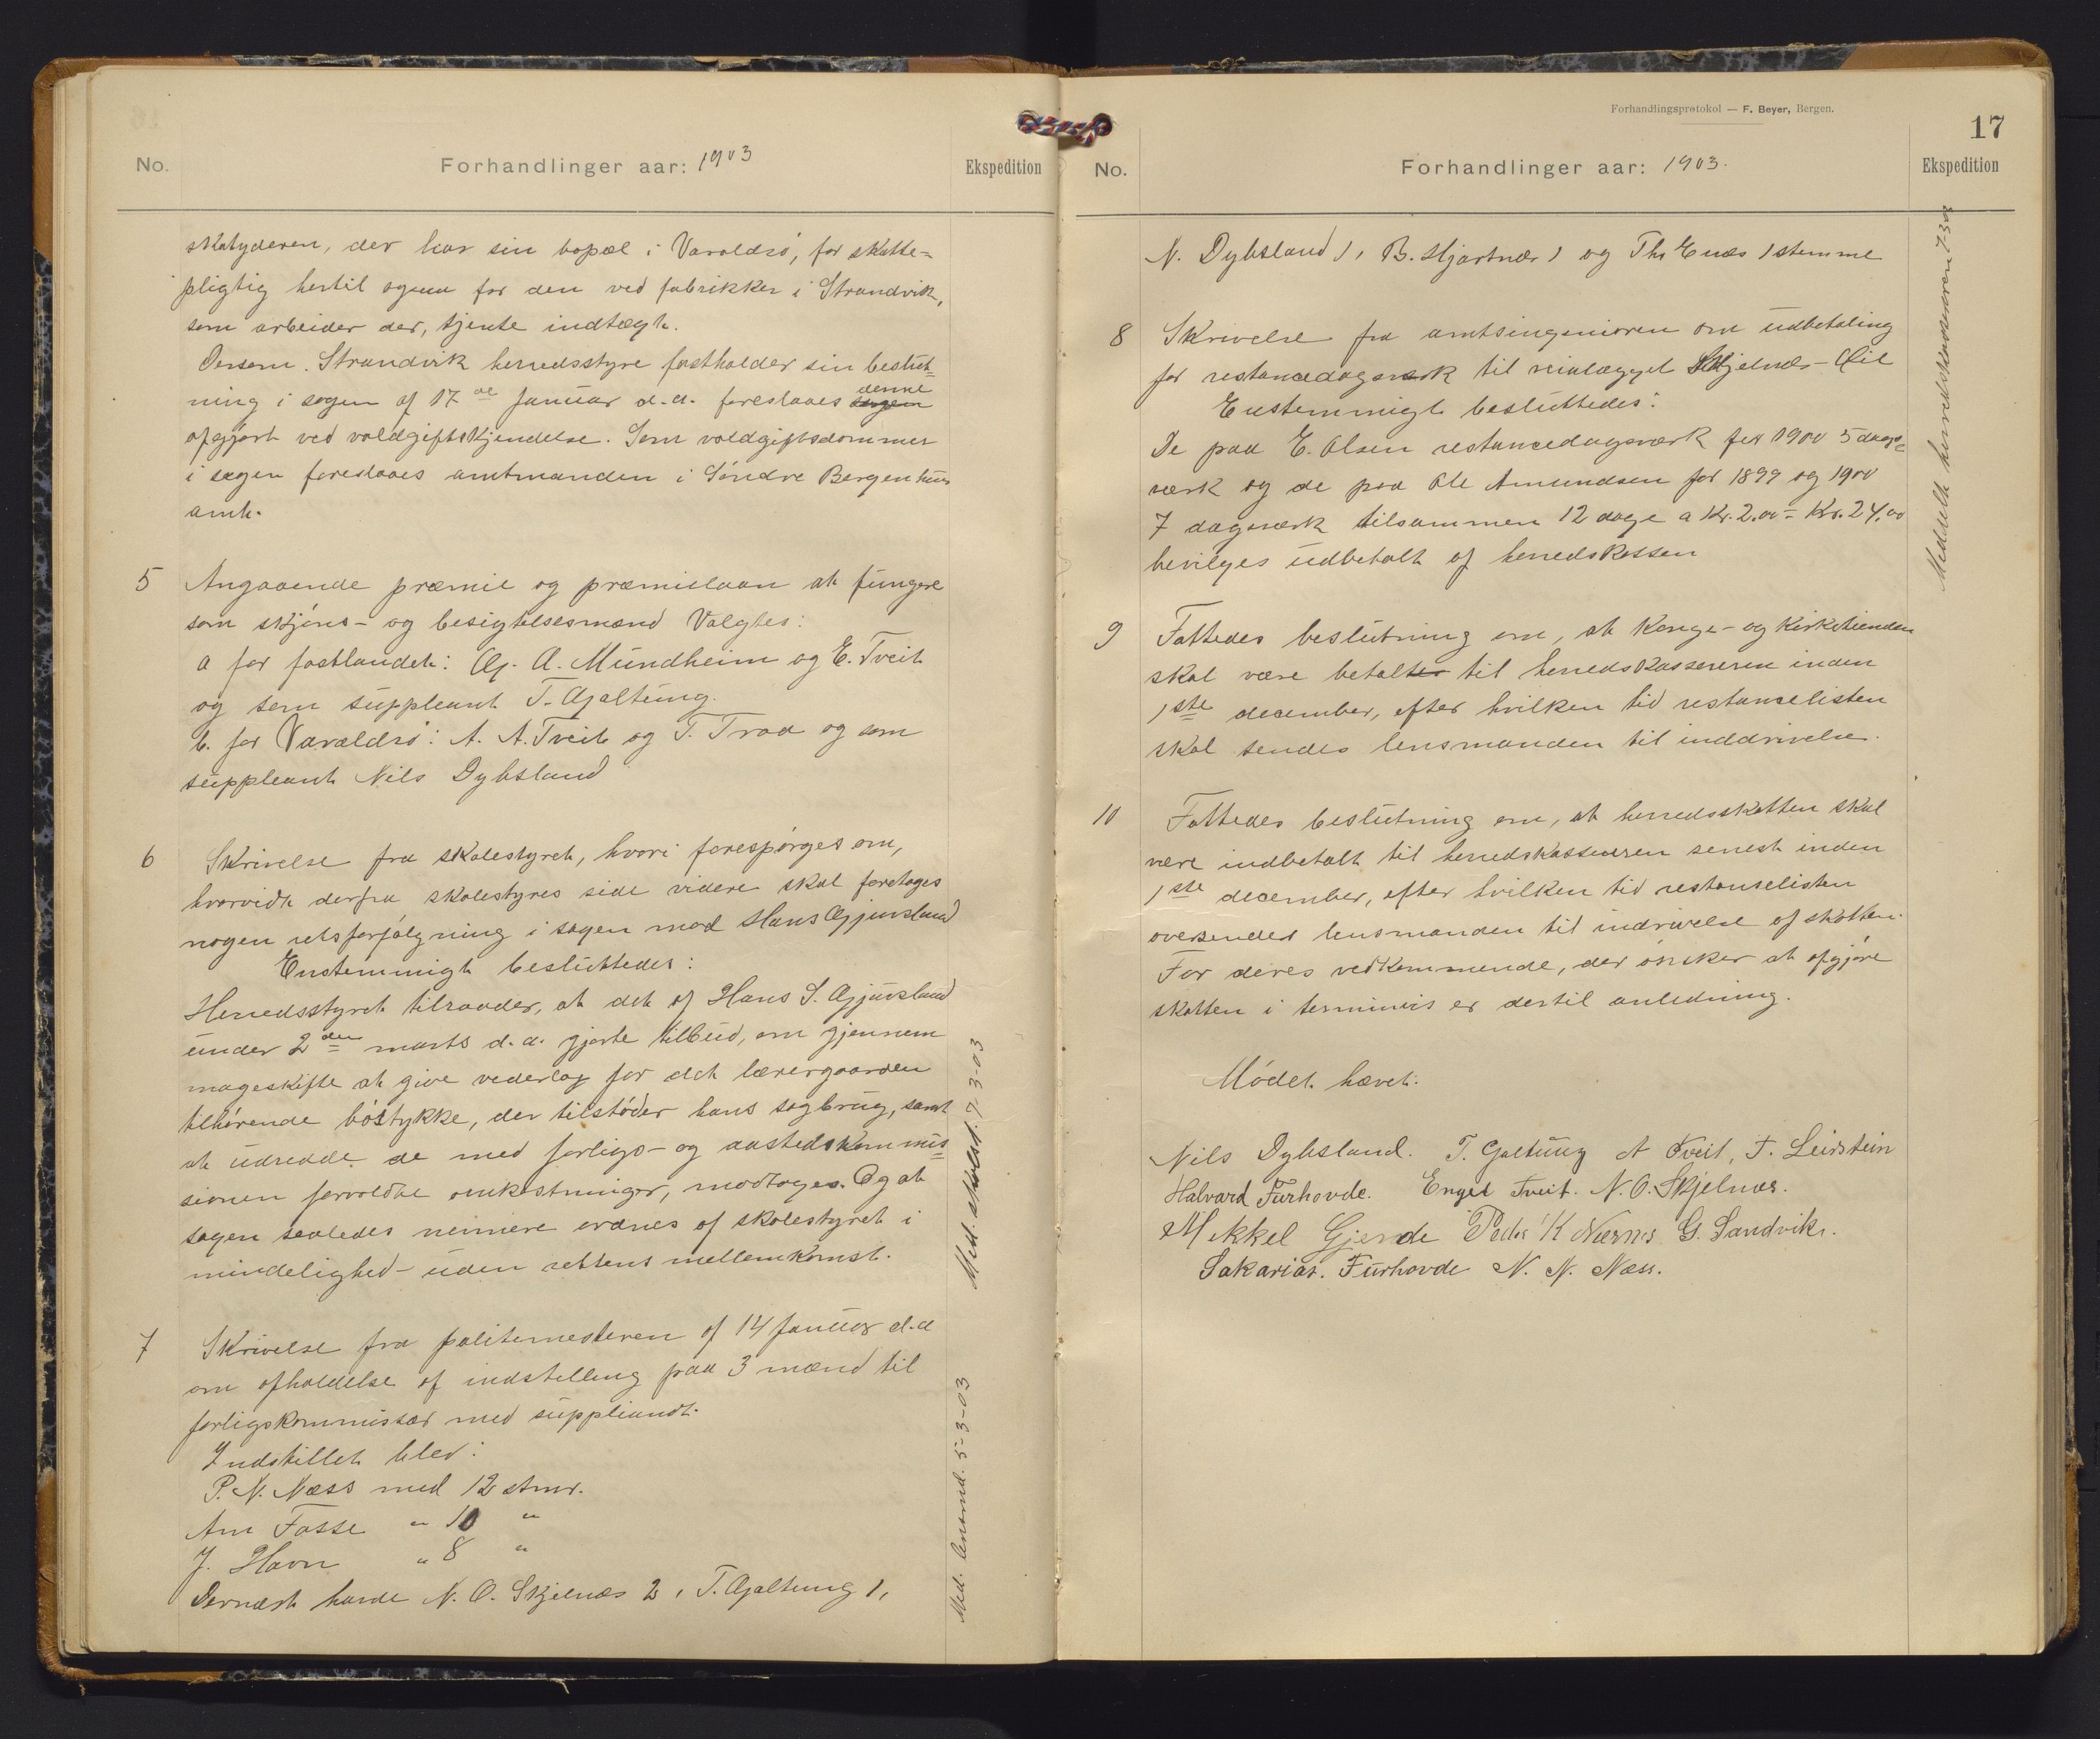 No.
Forhandlinger aar: 1903
Ekspedition
skatyderen, der har sin bopæl i Varaldsö, for skatte=
pligtig hertil ogsaa for den ved fabrikker i Strandvik,
som arbeider der, tjente indtægt.
Dersom Strandvik herredsstyre fastholder sin beslut=
ning i sagen af 17de Januar d.a. foreslaaes sagen denne
afgjort ved voldgiftskjendelse. Som voldgiftsdommer
i sagen foreslaaes amtmanden i Söndre Bergenhus
amt.
5 Angaaende præmie og præmielaan at fungere
som skjöns- og besigtelsesmænd Valgtes:
a for fastlandet: Gj. A. Mundheim og E. Tveit
og som suppleant T. Gjaltung.
b. for Varaldsö: A. A. Tveit og T. Traa og som
suppleant Nils Dybsland
6 Skrivelse fra skolestyret, hvori forespörges om,
hvorvidt derfra skolestyres side videre skal foretages
nogen retsforfölgning i sagen mod Hans Gjuvsland
Enstemmigt besluttedes:
Herredsstyret tilraader, at det af Hans S. Gjuvsland
under 2den marts d.a. gjorte tilbud, om gjennem
mageskifte at give vederlag for det lærergaarden
tilhörende böstykke, der tilstöder hans sagbrug, samt
at udrede de med forligs- og aastedskommis=
sionen forvoldte omkostninger, modtages. Og at
sagen saaledes nemmere ordnes af skolestyret i
mindelighed - uden rettens mellemkomst.
Med. skolest. 7-3-03
7 Skrivelse fra politemesteren af 14 Januar d.a
om afholdelse af indstelling paa 3 mænd til
forligskommissær med suppliandt.
Indstillet blev:
P. N. Næss med 12 stmr.
Am Fosse " 10 "
J. Havn " 8 "
Dernæst havde N. O. Skjelnæs 2, T. Gjaltung 1,
Med. lensmd. 5-3-03
Forhandlingsprotokol — F. Beyer, Bergen.
17
No.
Forhandlinger aar: 1903.
Ekspedition
N. Dybsland 1, B. Hjartnæs 1 og Ths Enæs 1 stemme
8 Skrivelse fra amtsingeniören om udbetaling
for restancedagsverk til veianlægget Skjelnæs - Öie
Enstemmigt besluttedes:
De paa E. Olsen restancedagsværk for 1900 5 dags=
værk og de paa Ole Amundsen for 1899 og 1900
7 dagsværk tilsammen 12 dage a Kr. 2.00 = Kr. 24,00
bevilges udbetalt af herredskassen
Meddelt herredskassereren 7-3-03
9 Fattedes beslutning om, at Konge- og Kirketienden
skal være betalt til herredskassereren inden
1ste december, efter hvilken tid restancelisten
skal sendes lensmanden til inddrivelse.
10 Fattedes beslutning om, at herredsskatten skal
være indbetalt til herredskassereren senest inden
1ste december, efter hvilken tid restanselisten
oversendes lensmanden til indrivelse af skatten.
For deres vedkommende, der önsker at afgjöre
skatten i terminvis er dertil anledning.
Mödet hævet.
Nils Dybsland. T. Galtung A Tveit, T. Leirstein
Halvard Furhovde. Engel Tveit. N. O. Skjelnæs.
Mikkel Gjerde Peder K Nernes G. Sandvik.
Sakarias. Furhovde N. N. Næss.